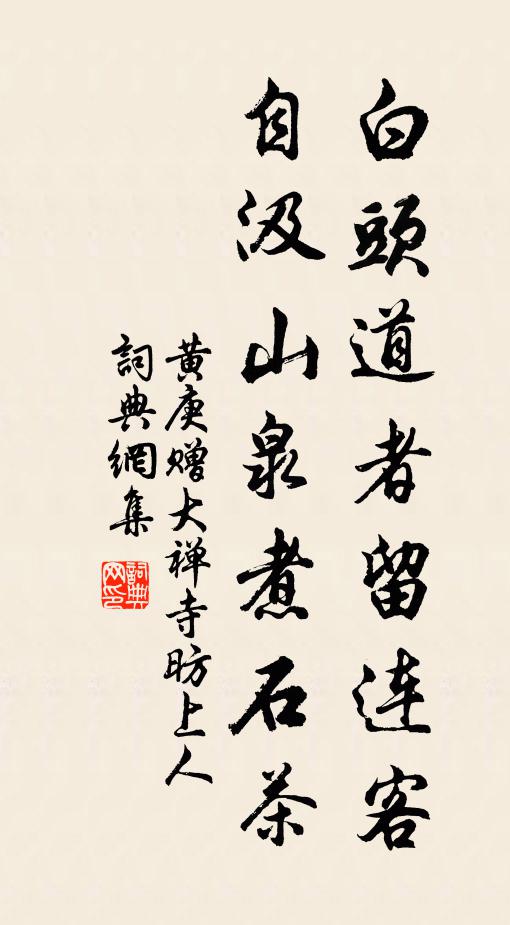 白頭道者留連客
自汲山泉煮石茶
黄庚赠大禅寺昉上人
詞典網集
詞典网印